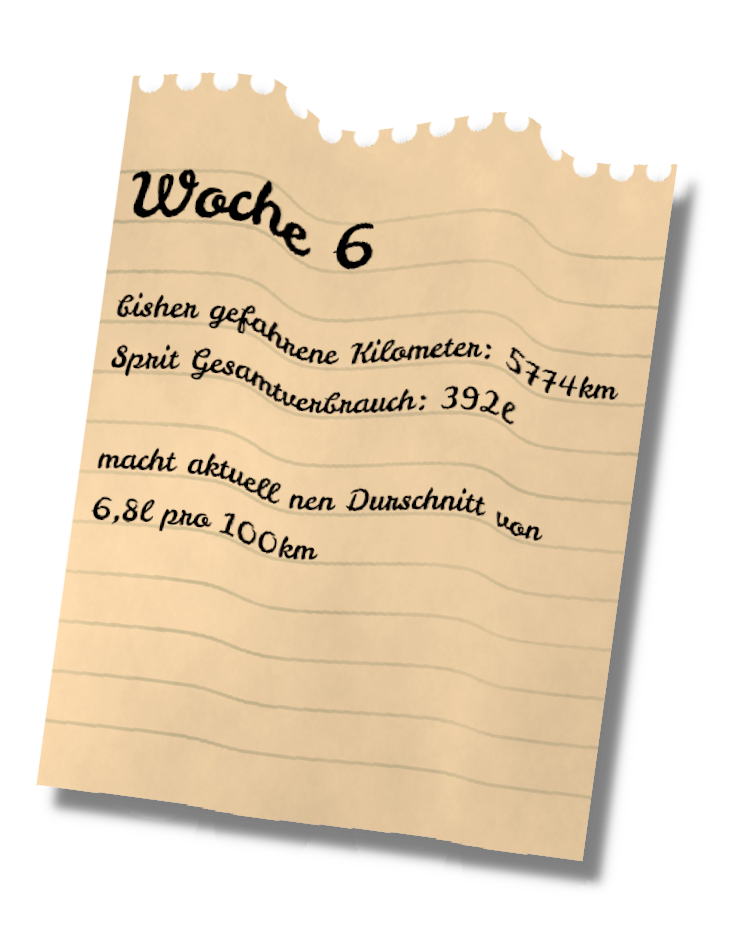 Woche 6
bisher gefahrene Kilometer: 5774km
Sprit Gesamtverbrauch: 392l
macht aktuell nen Durschnitt von
6,8l pro 100km